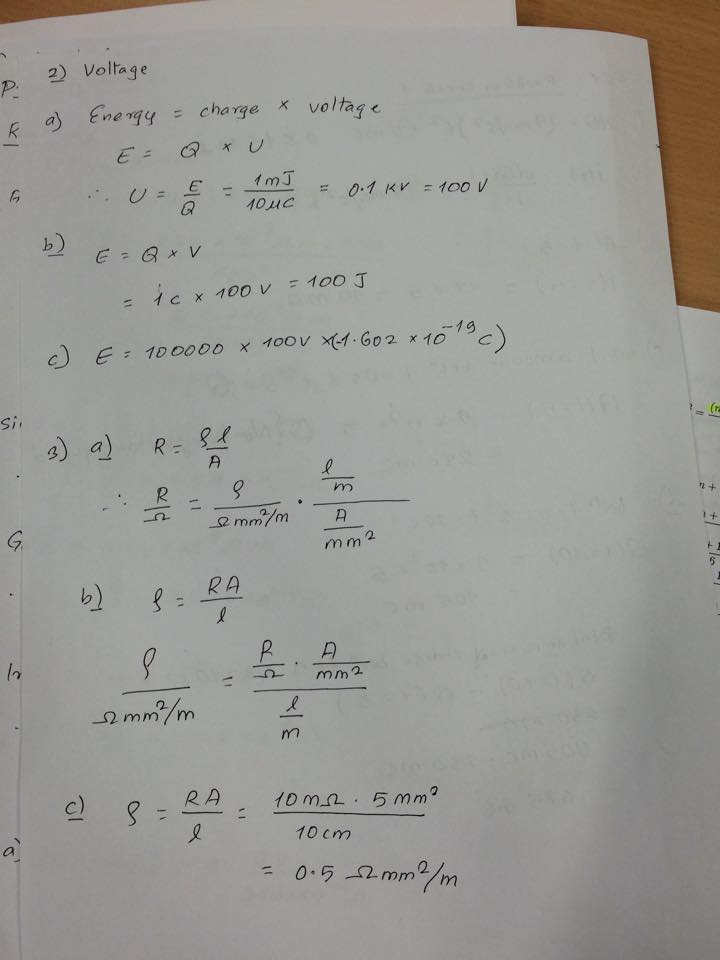 2) Voltage
a) Energy = charge × voltage
E = Q × U
∴ U = E/Q = 1mJ/10μC = 0.1 kV = 100 V
b) E = Q × V
= 1c × 100 V = 100 J
c) E = 100000 × 100V × (-1.602 × 10⁻¹⁹ C)
3) a) R = ρl/A
∴ R/Ω = ρ/(Ω mm²/m) · (l/m)/(A/mm²)
b) ρ = RA/l
ρ/(Ω mm²/m) = (R/Ω · A/mm²)/(l/m)
c) ρ = RA/l = (10 mΩ · 5 mm²)/10 cm
= 0.5 Ω mm²/m